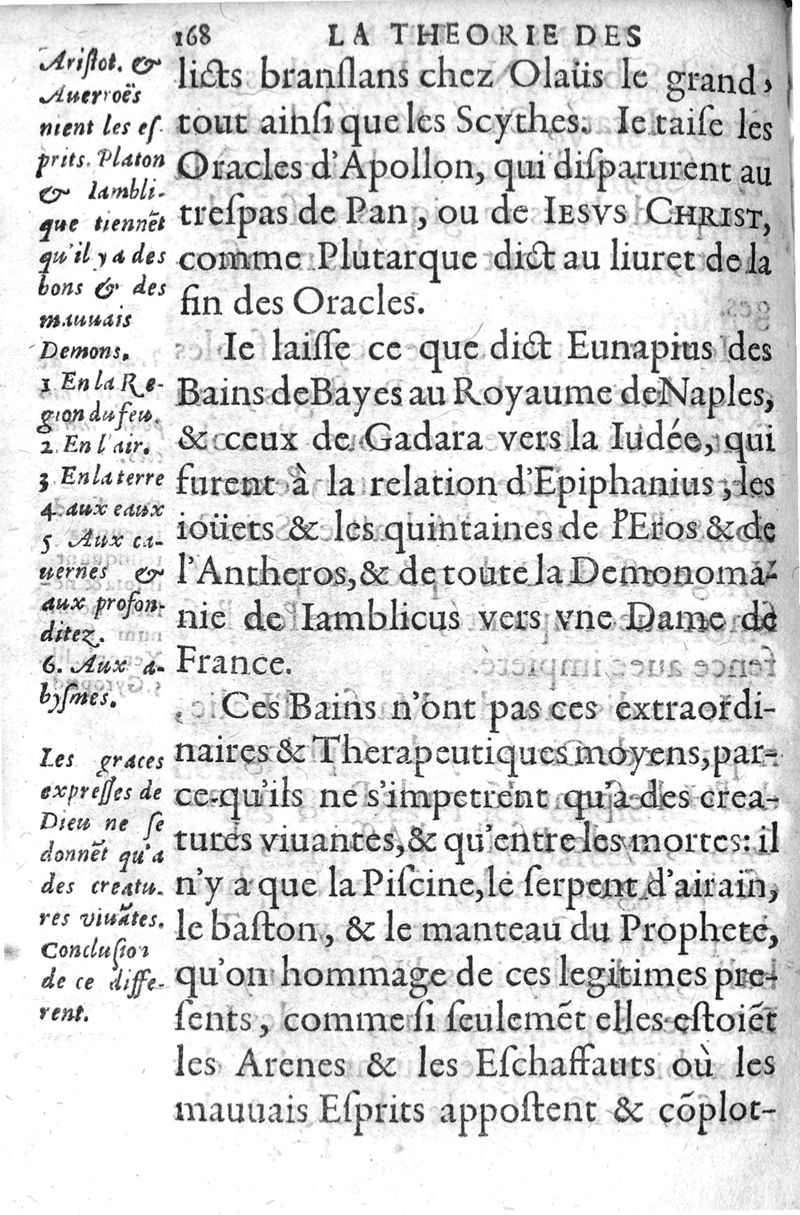 168 LA THEORIE DES
licts branſlans chez Olaüs le grand,
tout ainſi que les Scythes. Ie taiſe les
Oracles d'Apollon, qui diſparurent au
treſpas de Pan, ou de IESVS CHRIST,
comme Plutarque dict au liuret de la
fin des Oracles.
Ie laiſſe ce que dict Eunapius des
Bains de Bayes au Royaume de Naples,
& ceux de Gadara vers la Iudée, qui
furent à la relation d'Epiphanius, les
ioüets & les quintaines de l'Eros & de
l'Antheros, & de toute la Demonoma-
nie de Iamblicus vers vne Dame de
France.
Ces Bains n'ont pas ces extraordi-
naires & Therapeutiques moyens, par-
ce qu'ils ne s'impetrent qu'à des crea-
tures viuantes, & qu'entre les mortes: il
n'y a que la Piſcine, le ſerpent d'airain,
le baſton, & le manteau du Prophete,
qu'on hommage de ces legitimes pre-
ſents, comme ſi ſeulemẽt elles eſtoiẽt
les Arenes & les Eſchaffauts où les
mauuais Eſprits appoſtent & cõplot-
Ariſtot. &
Auerroës
nient les eſ-
prits. Platon
& Iambli-
que tiennẽt
qu'il y a des
bons & des
mauuais
Demons.
1 En la Re-
gion du feu.
2. En l'air.
3 En la terre
4. aux eaux
5. Aux ca-
uernes &
aux profon-
ditez.
6. Aux a-
byſmes.
Les graces
expreſſes de
Dieu ne ſe
donnẽt qu'a
des creatu-
res viuãtes.
Concluſion
de ce diffe-
rent.